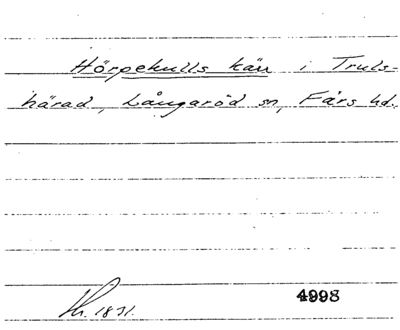 Hörpekulls kärr i Truls-
härad, Långaröd sn, Färs hd.
Kr. 1831.
4998